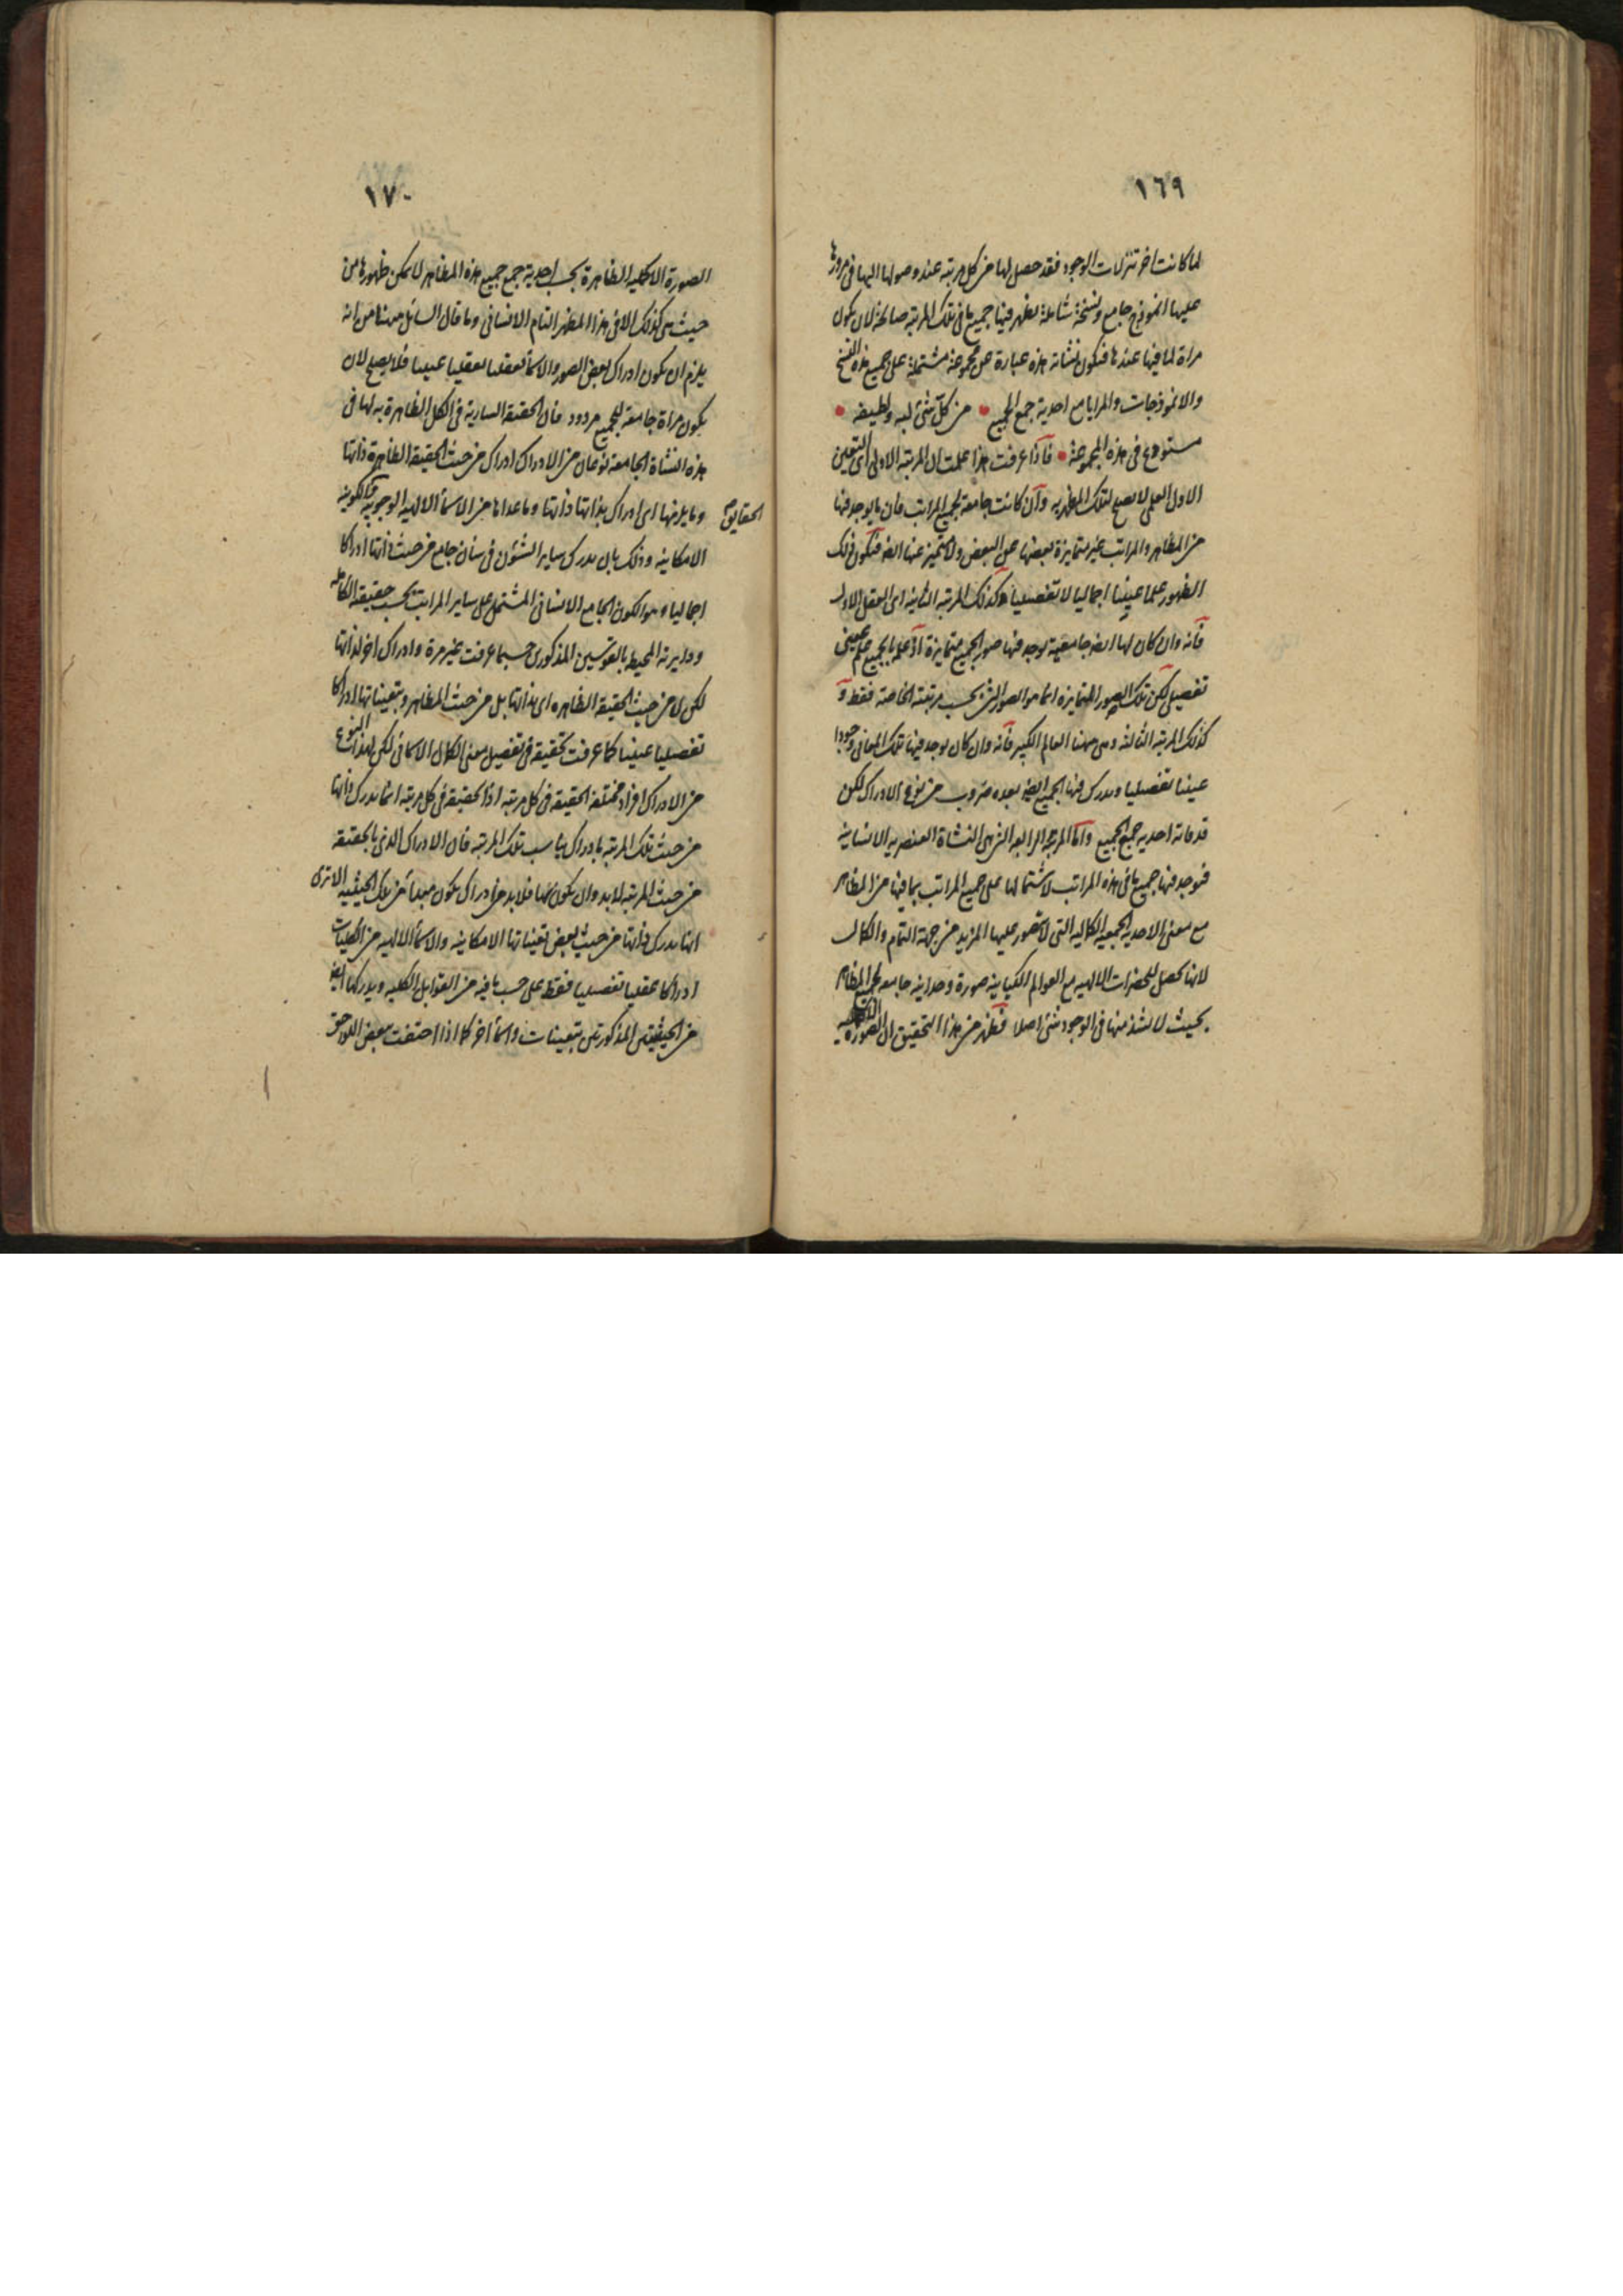 ١٦٩
لما كانت اخر تنزلات الوجود فقد حصل لها من كل مرتبة عند وصولها اليها فى مرورها
عليها انموذج جامع ونسخة شاملة يظهر فيها جميع ما فى تلك المرتبة صالحة لان يكون
مراة لما فيها عندها فتكون نشأته هذه عبارة عن مجموعة مشتملة على جميع هذه النسخ
والانموذجات والمرايا مع احدية جمع الجميع من كل شئ لبه ولطيفه
مستودع فى هذه المجموعة فاذا عرفت هذا علمت ان المرتبة الاولى اى التعين
الاول العلمى لا يصلح لتلك المظهرية وان كانت جامعة لجميع المراتب فان ما يوجد فيها
من المظاهر والمراتب غير متمايزة بعضها عن البعض ولا متميز عنها ايضا فتكون ذلك
الظهور علما عينيا اجماليا لا تفصيليا وكذلك المرتبة الثانية اى العقل الاول
فانه وان كان لها ايضا جامعية يوجد فيها صور الجميع متمايزة اذ علم بالجميع علم عينى
تفصيلى لكن تلك الصور المتمايزة انما هو الصور التى بحسب مرتبته الخاصة فقط و
كذلك المرتبة الثالثة وهى مهنا العالم الكبير فانه وان كان يوجد فيها تلك المعانى وجودا
عينيا تفصيليا ويدرك فيها الجميع ايضا بعده ضروب من نوع الادراك لكن
قد فاته احدية جمع الجميع واما المرتبة الرابعة التى هى النشاة العنصرية الانسانية
فيوجد فيها جميع ما فى هذه المراتب لاشتمالها على جميع المراتب بما فيها من المظاهر
مع معنى الاحدية الجمعية الكمالية التى لا يتصور عليها المزيد من جهة التمام والكمال
لانها تحصل للحضرات الالهية مع العوالم الكيانية صورة وحدانية جامعة لجميع المظاهر
بحيث لا يشذ منها فى الوجود شئ اصلا فظهر من هذا التحقيق ان الصورة
١٧٠
الصورة الاكملية الظاهرة بحسب احدية جمع جميع هذه المظاهر لا يمكن ظهورها من
حيث هى كذلك الا فى هذا المظهر التام الانسانى وما قال السائل مهنا من انه
يلزم ان يكون ادراك بعض الصور والاسماء تعقليا عينيا فلا يصلح لان
يكون مراة جامعة للجميع مردود فان الحقيقة السارية فى الكل الظاهرة به لها فى
هذه النشاة الجامعة نوعان من الادراك ادراك من حيث الحقيقة الظاهرة ذاتها
وما يلزمها اى ادراك بذاتها ذاتها وما عداها من الاسماء الالهية الوجوبية والكونية
الحقايق
الامكانية وذلك بان يدرك ساير الشئون فى شان جامع من حيث ذاتها ادراكا
اجماليا وهو الكون الجامع الانسانى المشتمل على ساير المراتب بحسب حقيقة الكاملة
ودايرته المحيط بالقوسين المذكورين حسبما عرفت غير مرة وادراك اخر لذاتها
لكن لا من حيث الحقيقة الظاهرة اى بذاتها بل من حيث المظاهر وبتعيناتها ادراكا
تفصيليا عينيا كما عرفت تحقيقه فى تفصيل معنى الكمال الاسمائى لكن لهذا النوع
من الادراك افراد مختلفة الحقيقة فى كل مرتبة اذ الحقيقة فى كل مرتبة انما يدرك ذاتها
من حيث تلك المرتبة بادراك يناسب تلك المرتبة فان الادراك الذى بالحقيقة
من حيث المرتبة لابد وان يكون بها فلابد من ادراك يكون مبدأ من تلك الحيثية الا ترى
انها يدرك ذاتها من حيث بعض تعيناتها الامكانية والاسماء الالهية من الكليات
ادراكا عقليا تفصيليا فقط على حسب ما فيه من القوابل الكلية ويدركها ايضا
من الحيثيتين المذكورتين بتعينات واسماء اخر كما اذا احتفت ببعض اللواحق